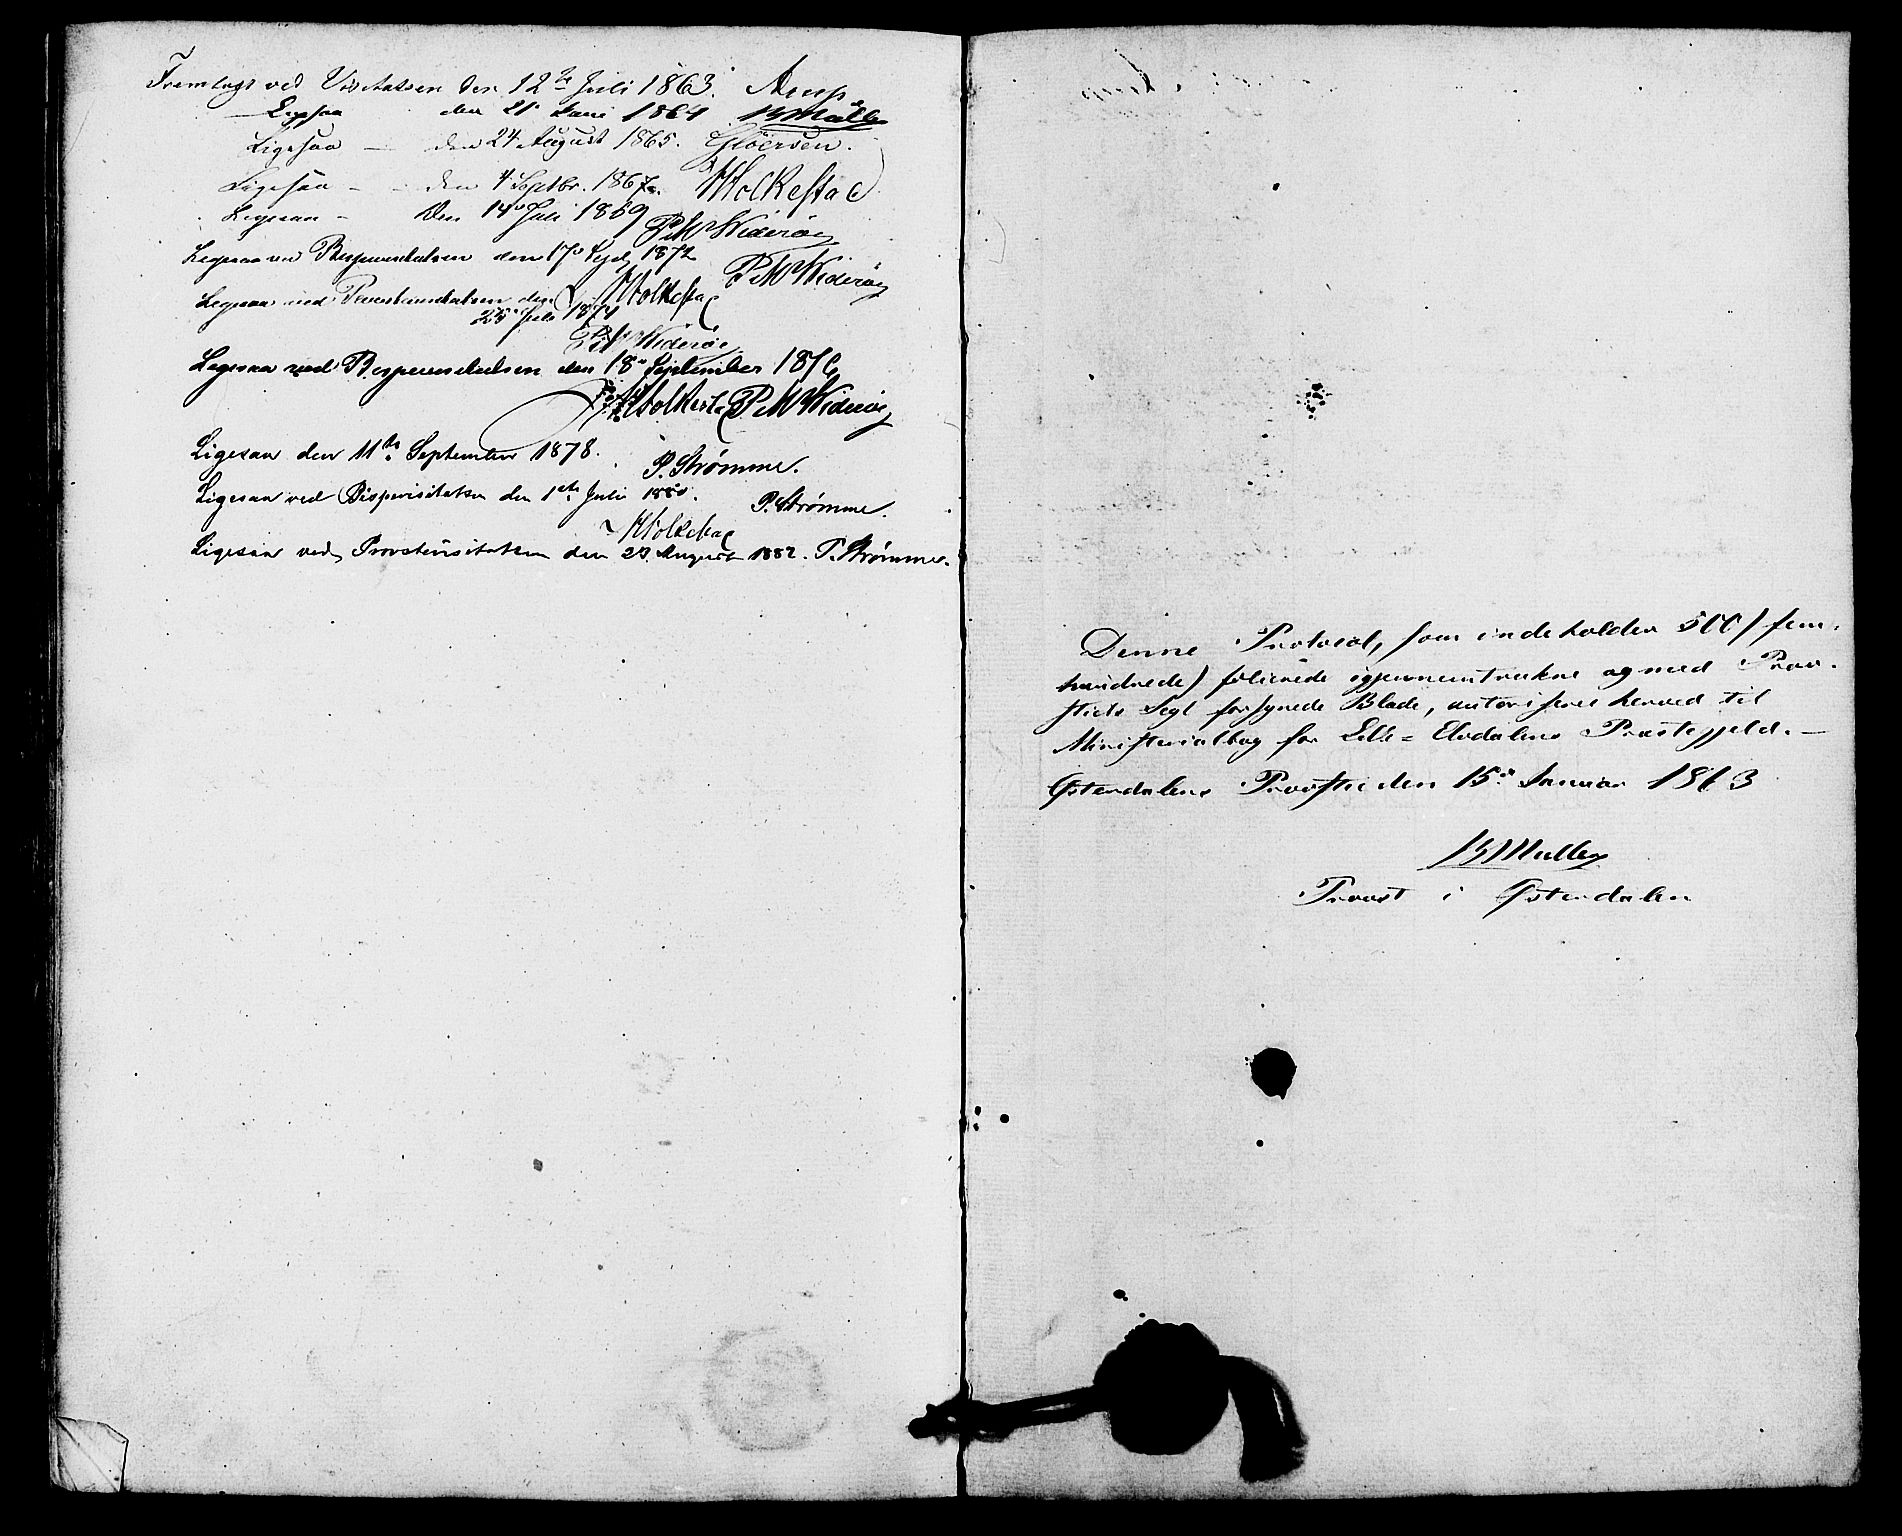 Fremlagt ved Visitatsen den 12te Juli 1863. Arup
Ligesaa den 21 Juni 1864 B Müller
Ligesaa — den 24 August 1865. Gløersen.
Ligesaa - - den 4 Septbr. 1867. H Folkestad
Ligesaa - den 14 Juli 1869 P M Widerøe
Ligesaa ved Bispevisitatsen den 17 Septbr 1872 P M Widerøe
H Folkestad
Ligesaa ved Provstevisitatsen den
25 Juli 1874
P M Widerøe
Ligesaa ved Bispevisitatsen den 18 September 1876
H Folkestad P M Widerøe
Ligesaa den 11te September 1878. P. Strømme.
Ligesaa ved Bispevisitatsen den 1ste Juli 1880. P. Strømme.
H Folkestad
Ligesaa ved Provstevisitatsen den 27 August 1882. P. Strømme.
Denne Protocol, som indeholder 500 / fem
hundrede) folierede igjennemtrukne og med Prov-
stiets Segl forsynede Blade, autoriseres herved til
Ministerialbog for Lille = Elvdalens Præstegjeld. —
Østerdalens Provsti den 15 Januar 1863
B Müller
Provst i Østerdalen